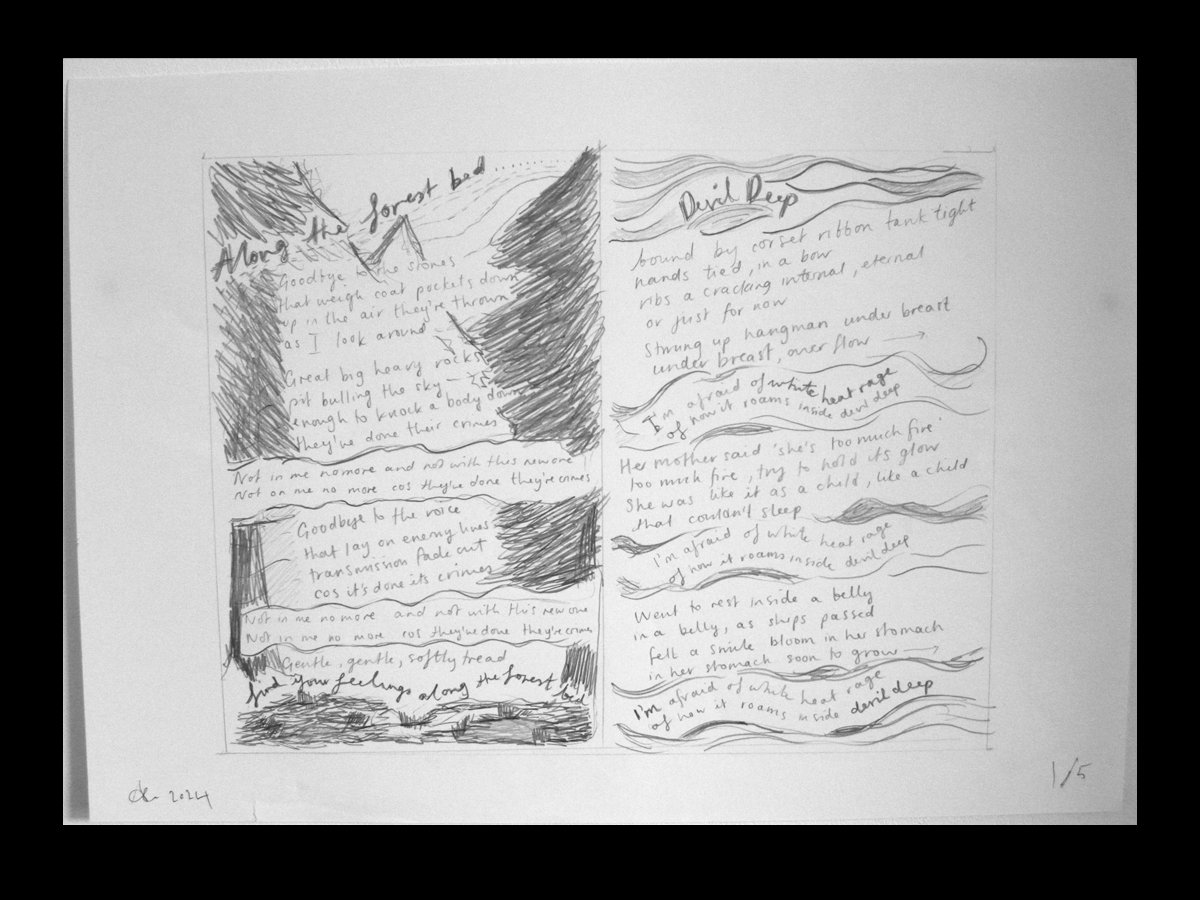 Along the forest bed
Goodbye to the stones
that weigh coat pockets down
up in the air they're thrown
as I look around
Great big heavy rocks
pit bulling the sky
enough to knock a body down
they've done their crimes
Not in me no more and not with this new one
Not on me no more cos they've done they're crimes
Goodbye to the voice
that lay on enemy lines
transmission fade out
cos it's done its crimes
Not in me no more and not with this new one
Not in me no more cos they've done they're crime
Gentle, gentle, softly tread
find your feelings along the forest bed
2024
Devil Deep
bound by corset ribbon tank tight
hands tied, in a bow
ribs a cracking internal, eternal
or just for now
Strung up hangman under breast
under breast, over flow →
I'm afraid of white heat rage
of how it roams inside devil deep
Her mother said 'she's too much fire'
too much fire, try to hold its glow
She was like it as a child, like a child
that couldn't sleep
I'm afraid of white heat rage
of how it roams inside devil deep
Went to rest inside a belly
in a belly, as ships passed
felt a smile bloom in her stomach
in her stomach soon to grow →
I'm afraid of white heat rage
of how it roams inside devil deep
1/5